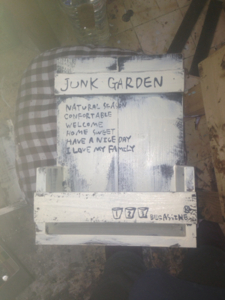 JUNK GARDEN
NATURAL
COMFORTABLE
WELCOME
HOME SWEET
HAVE A NICE DAY
I LOVE MY FAMILY